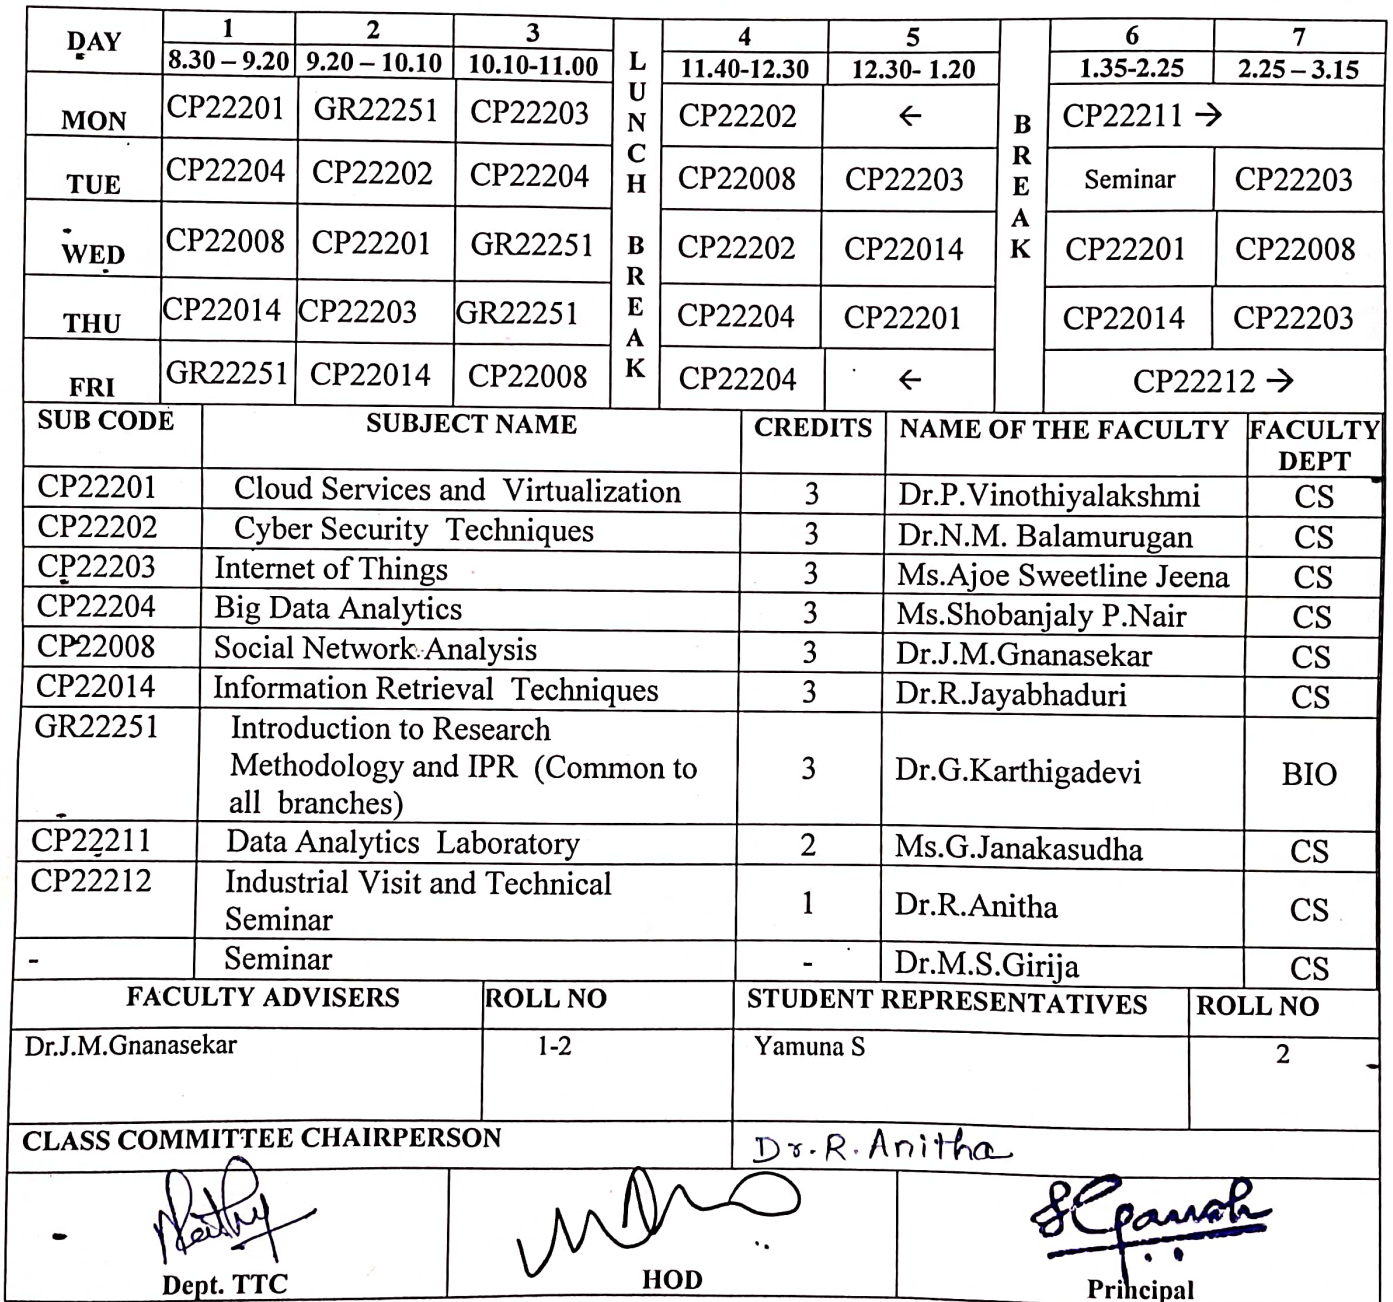 DAY 1 2 3 LUNCH BREAK 4 5 BREAK 6 7
8.30 – 9.20 9.20 – 10.10 10.10-11.00 11.40-12.30 12.30- 1.20 1.35-2.25 2.25 – 3.15
MON CP22201 GR22251 CP22203 CP22202 ← CP22211 →
TUE CP22204 CP22202 CP22204 CP22008 CP22203 Seminar CP22203
WED CP22008 CP22201 GR22251 CP22202 CP22014 CP22201 CP22008
THU CP22014 CP22203 GR22251 CP22204 CP22201 CP22014 CP22203
FRI GR22251 CP22014 CP22008 CP22204 ← CP22212 →
SUB CODE SUBJECT NAME CREDITS NAME OF THE FACULTY FACULTY
DEPT
CP22201 Cloud Services and Virtualization 3 Dr.P.Vinothiyalakshmi CS
CP22202 Cyber Security Techniques 3 Dr.N.M. Balamurugan CS
CP22203 Internet of Things 3 Ms.Ajoe Sweetline Jeena CS
CP22204 Big Data Analytics 3 Ms.Shobanjaly P.Nair CS
CP22008 Social Network Analysis 3 Dr.J.M.Gnanasekar CS
CP22014 Information Retrieval Techniques 3 Dr.R.Jayabhaduri CS
GR22251 Introduction to Research
Methodology and IPR (Common to 3 Dr.G.Karthigadevi BIO
all branches)
CP22211 Data Analytics Laboratory 2 Ms.G.Janakasudha CS
CP22212 Industrial Visit and Technical 1 Dr.R.Anitha CS
Seminar
- Seminar - Dr.M.S.Girija CS
FACULTY ADVISERS ROLL NO STUDENT REPRESENTATIVES ROLL NO
Dr.J.M.Gnanasekar 1-2 Yamuna S 2
CLASS COMMITTEE CHAIRPERSON Dr.R.Anitha
Dept. TTC HOD Principal